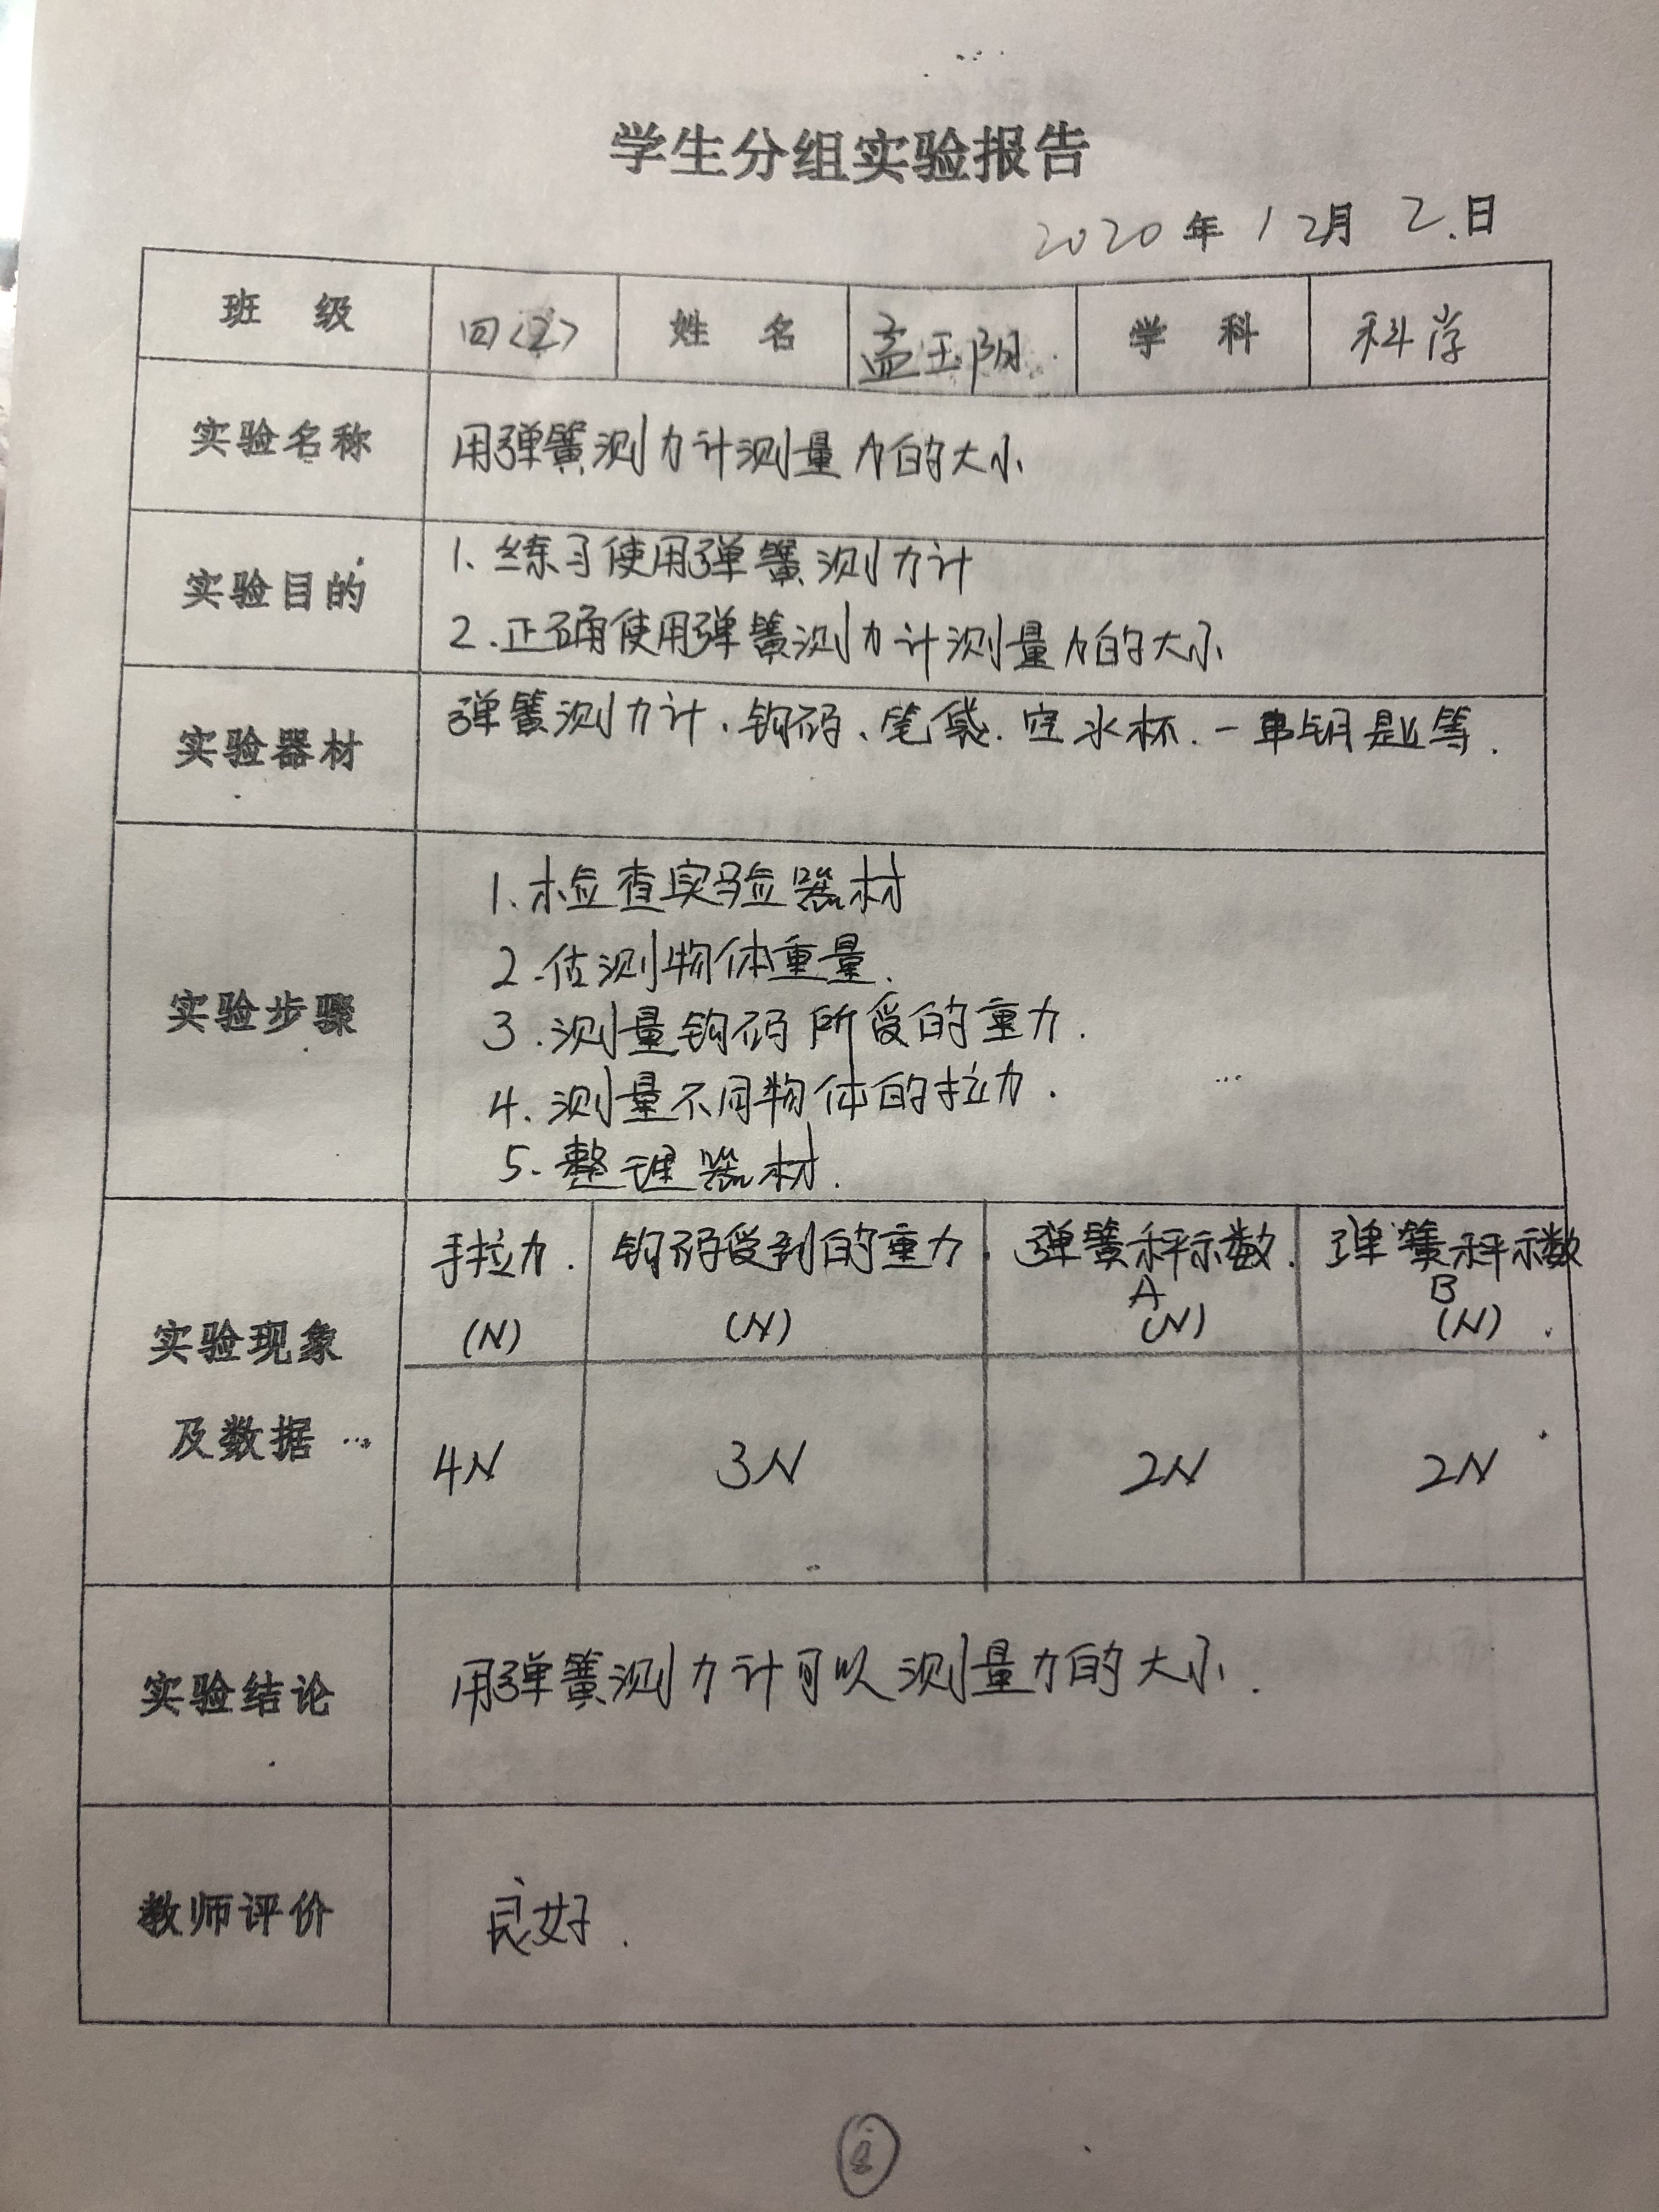 学生分组实验报告
2020年12月2.日
班 级 四(2) 姓 名 孟玉阴 学 科 科学
实验名称 用弹簧测力计测量力的大小
实验目的 1.练习使用弹簧测力计
2.正确使用弹簧测力计测量力的大小
实验器材 弹簧测力计、钩码、笔袋.空水杯.一串钥匙等.
实验步骤
1.检查实验器材
2.估测物体重量.
3.测量钩码所受的重力.
4.测量不同物体的拉力.
5.整理器材.
实验现象及数据
手拉力.(N) 钩码受到的重力.(N) 弹簧秤示数.A(N) 弹簧秤示数B(N).
4N 3N 2N 2N
实验结论 用弹簧测力计可以测量力的大小.
教师评价 良好.
8